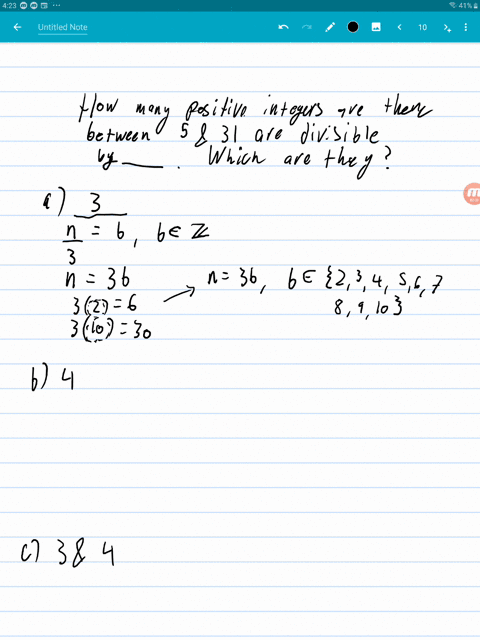 4:23
41%
Untitled Note
10
How many positive integers are there
between 5 & 31 are divisible
by ____. Which are they?
a) 3
n/3 = b, b ∈ ℤ
n = 3b
3(2) = 6
3(10) = 30
n = 3b, b ∈ {2, 3, 4, 5, 6, 7
8, 9, 10}
b) 4
c) 3 & 4